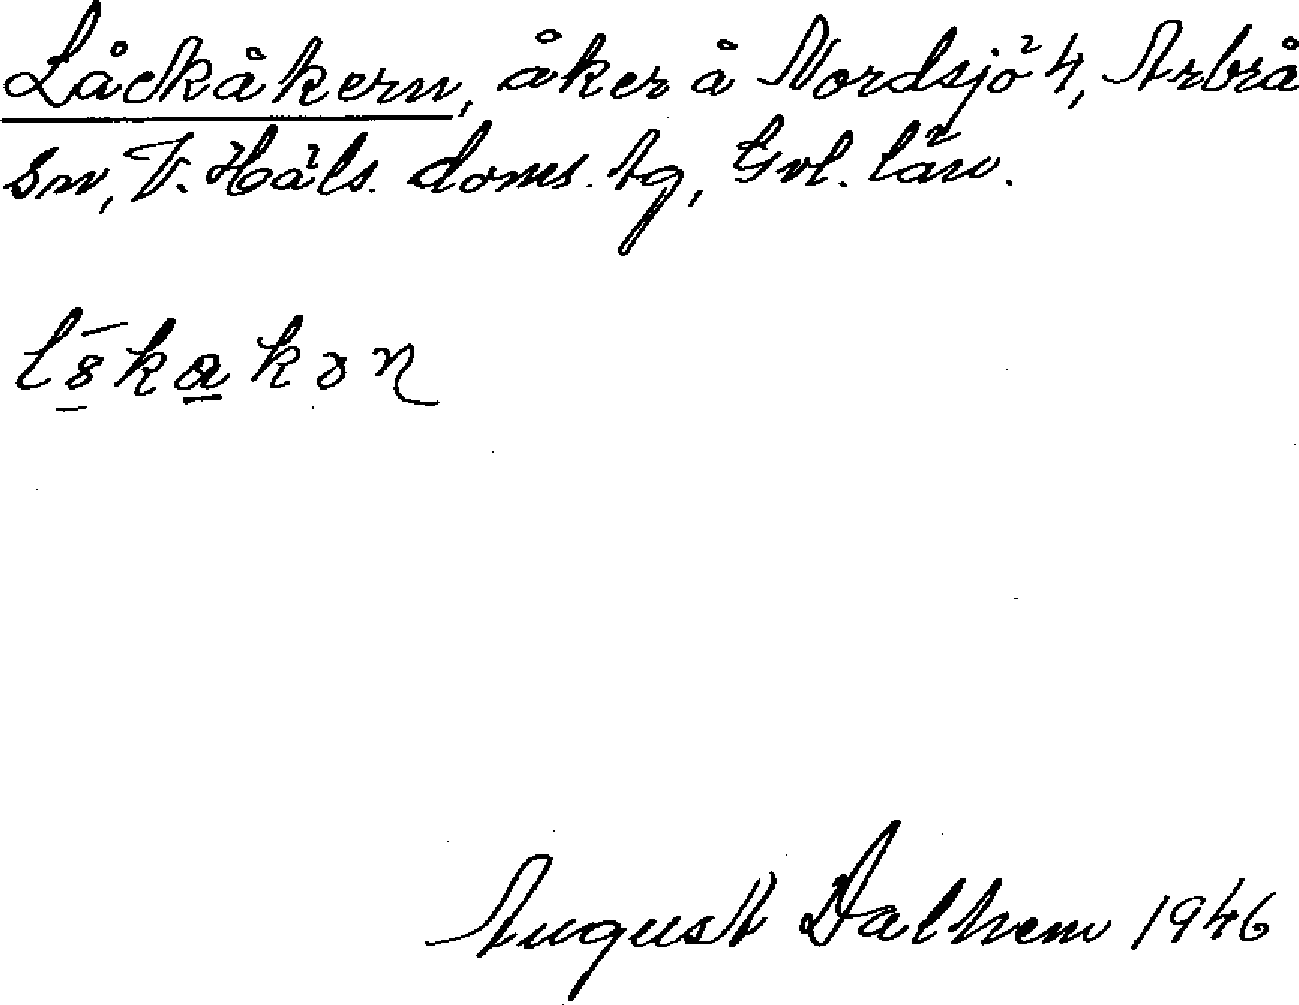 Låckåkern, åker å Nordsjö 4, Arbrå
sn, V. Häls. doms. tg, Gvl. län.
August Dalhem 1946